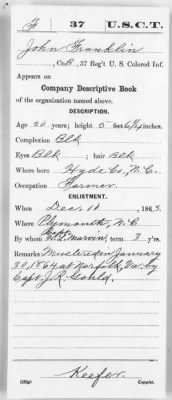 F 37 U.S.C.T.
John Franklin
, Co. B, 37 Reg't U. S. Colored Inf.
Appears on
Company Descriptive Book
of the organization named above.
DESCRIPTION.
Age 20 years; height 5 feet 6 inches.
Complexion Blk
Eyes Blk ; hair Blk
Where born Hyde Co., N.C.
Occupation Farmer
ENLISTMENT.
When Dec. 10 , 1863.
Where Plymouth, N.C
By whom Marvin; term 3 y'rs.
Remarks Mustered in January
30, 1864 at Norfolk, Va. by
Capt. J.R. Gould.
Keefer
Copyist.